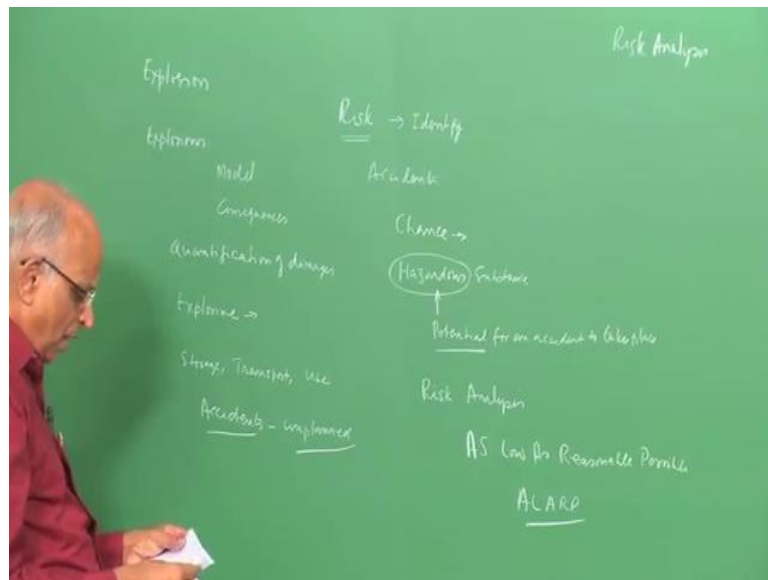 Risk Analysis
Explosion
Explosions
Model
Consequences
Quantification of damages
Explosive →
Storage, Transport, Use
Accidents - unplanned
Risk → Identify
Accidents
Chance →
Hazardous Substance
Potential for an accident to take place
Risk Analysis
AS Low As Reasonable Possible
ALARP